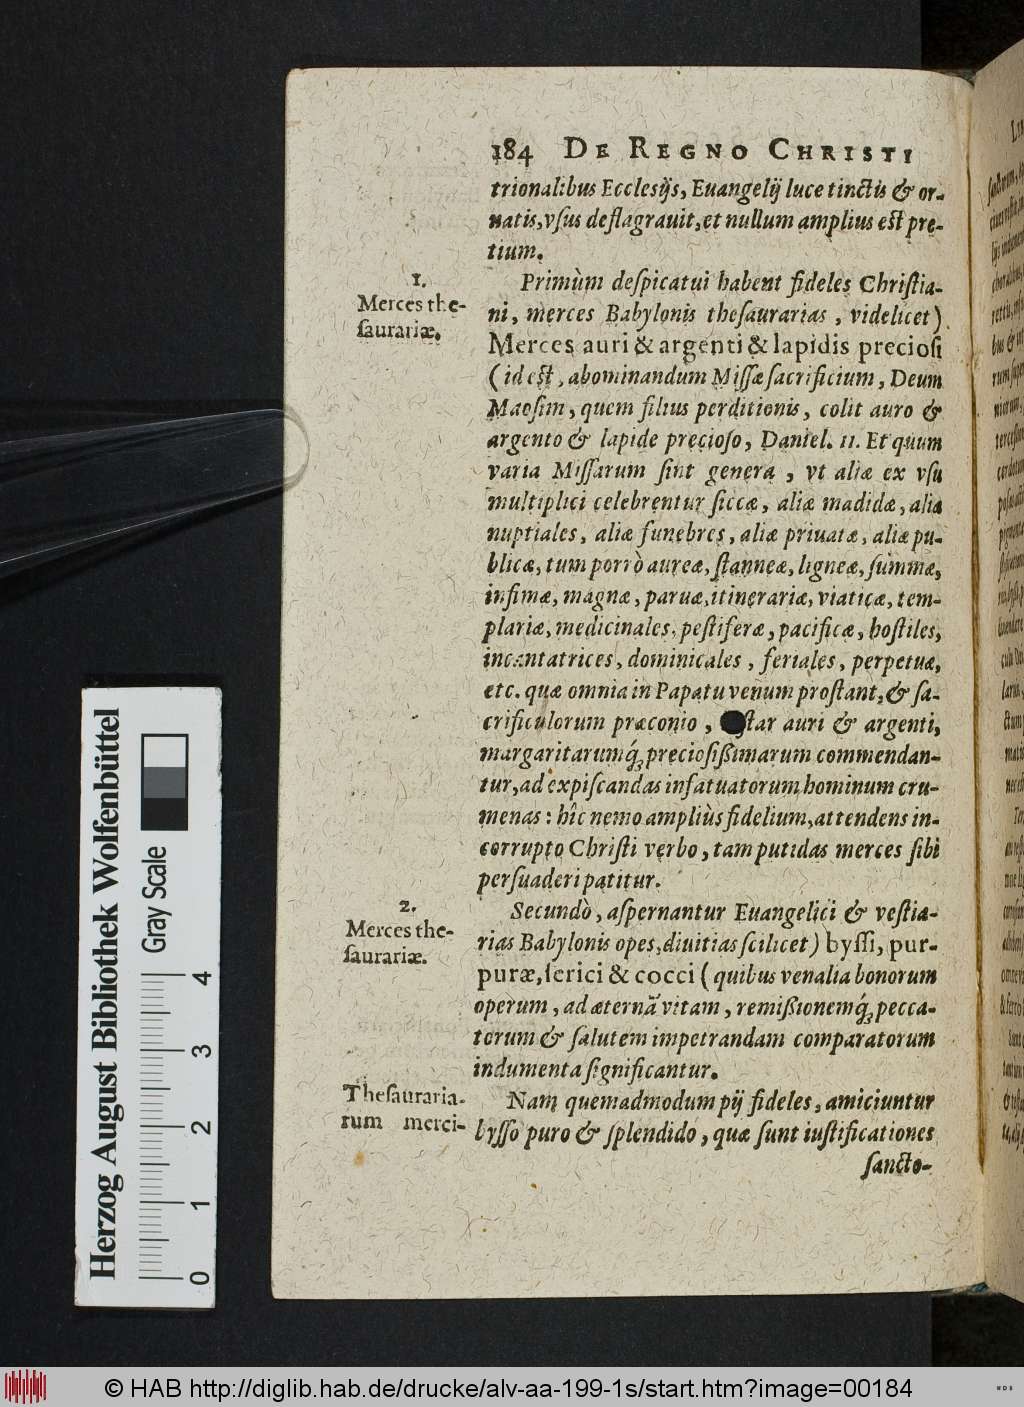 184 DE REGNO CHRISTI
trionalibus Ecclesijs, Euangelij luce tinctis & or-
natis, vsus deflagrauit, et nullum amplius est pre-
tium.
1.
Merces the-
saurariæ.
Primùm despicatui habent fideles Christia-
ni, merces Babylonis thesaurarias, videlicet)
Merces auri & argenti & lapidis preciosi
(id est, abominandum Missæ sacrificium, Deum
Maosim, quem filius perditionis, colit auro &
argento & lapide precioso, Daniel. 11. Et quum
varia Missarum sint genera, vt aliæ ex vsu
multiplici celebrentur siccæ, aliæ madidæ, aliæ
nuptiales, aliæ funebres, aliæ priuatæ, aliæ pu-
blicæ, tum porrò aureæ, stanneæ, ligneæ, summæ,
infimæ, magnæ, paruæ, itinerariæ, viaticæ, tem-
plariæ, medicinales, pestiferæ, pacificæ, hostiles,
incantatrices, dominicales, feriales, perpetuæ,
etc. quæ omnia in Papatu venum prostant, & sa-
crificulorum præconio, star auri & argenti,
margaritarumq́; preciosißimarum commendan-
tur, ad expiscandas infatuatorum hominum cru-
menas: hîc nemo ampliùs fidelium, attendens in-
corrupto Christi verbo, tam putidas merces sibi
persuaderi patitur.
2.
Merces the-
saurariæ.
Secundò, aspernantur Euangelici & vestia-
rias Babylonis opes, diuitias scilicet) byssi, pur-
puræ, serici & cocci (quibus venalia bonorum
operum, ad æternã vitam, remißionemq́; pecca-
torum & salutem impetrandam comparatorum
indumenta significantur.
Thesauraria-
rum merci-
Nam quemadmodum pij fideles, amiciuntur
bysso puro & splendido, quæ sunt iustificationes
sancto-
Herzog August Bibliothek Wolfenbüttel
Gray Scale
0 1 2 3 4
© HAB http://diglib.hab.de/drucke/alv-aa-199-1s/start.htm?image=00184